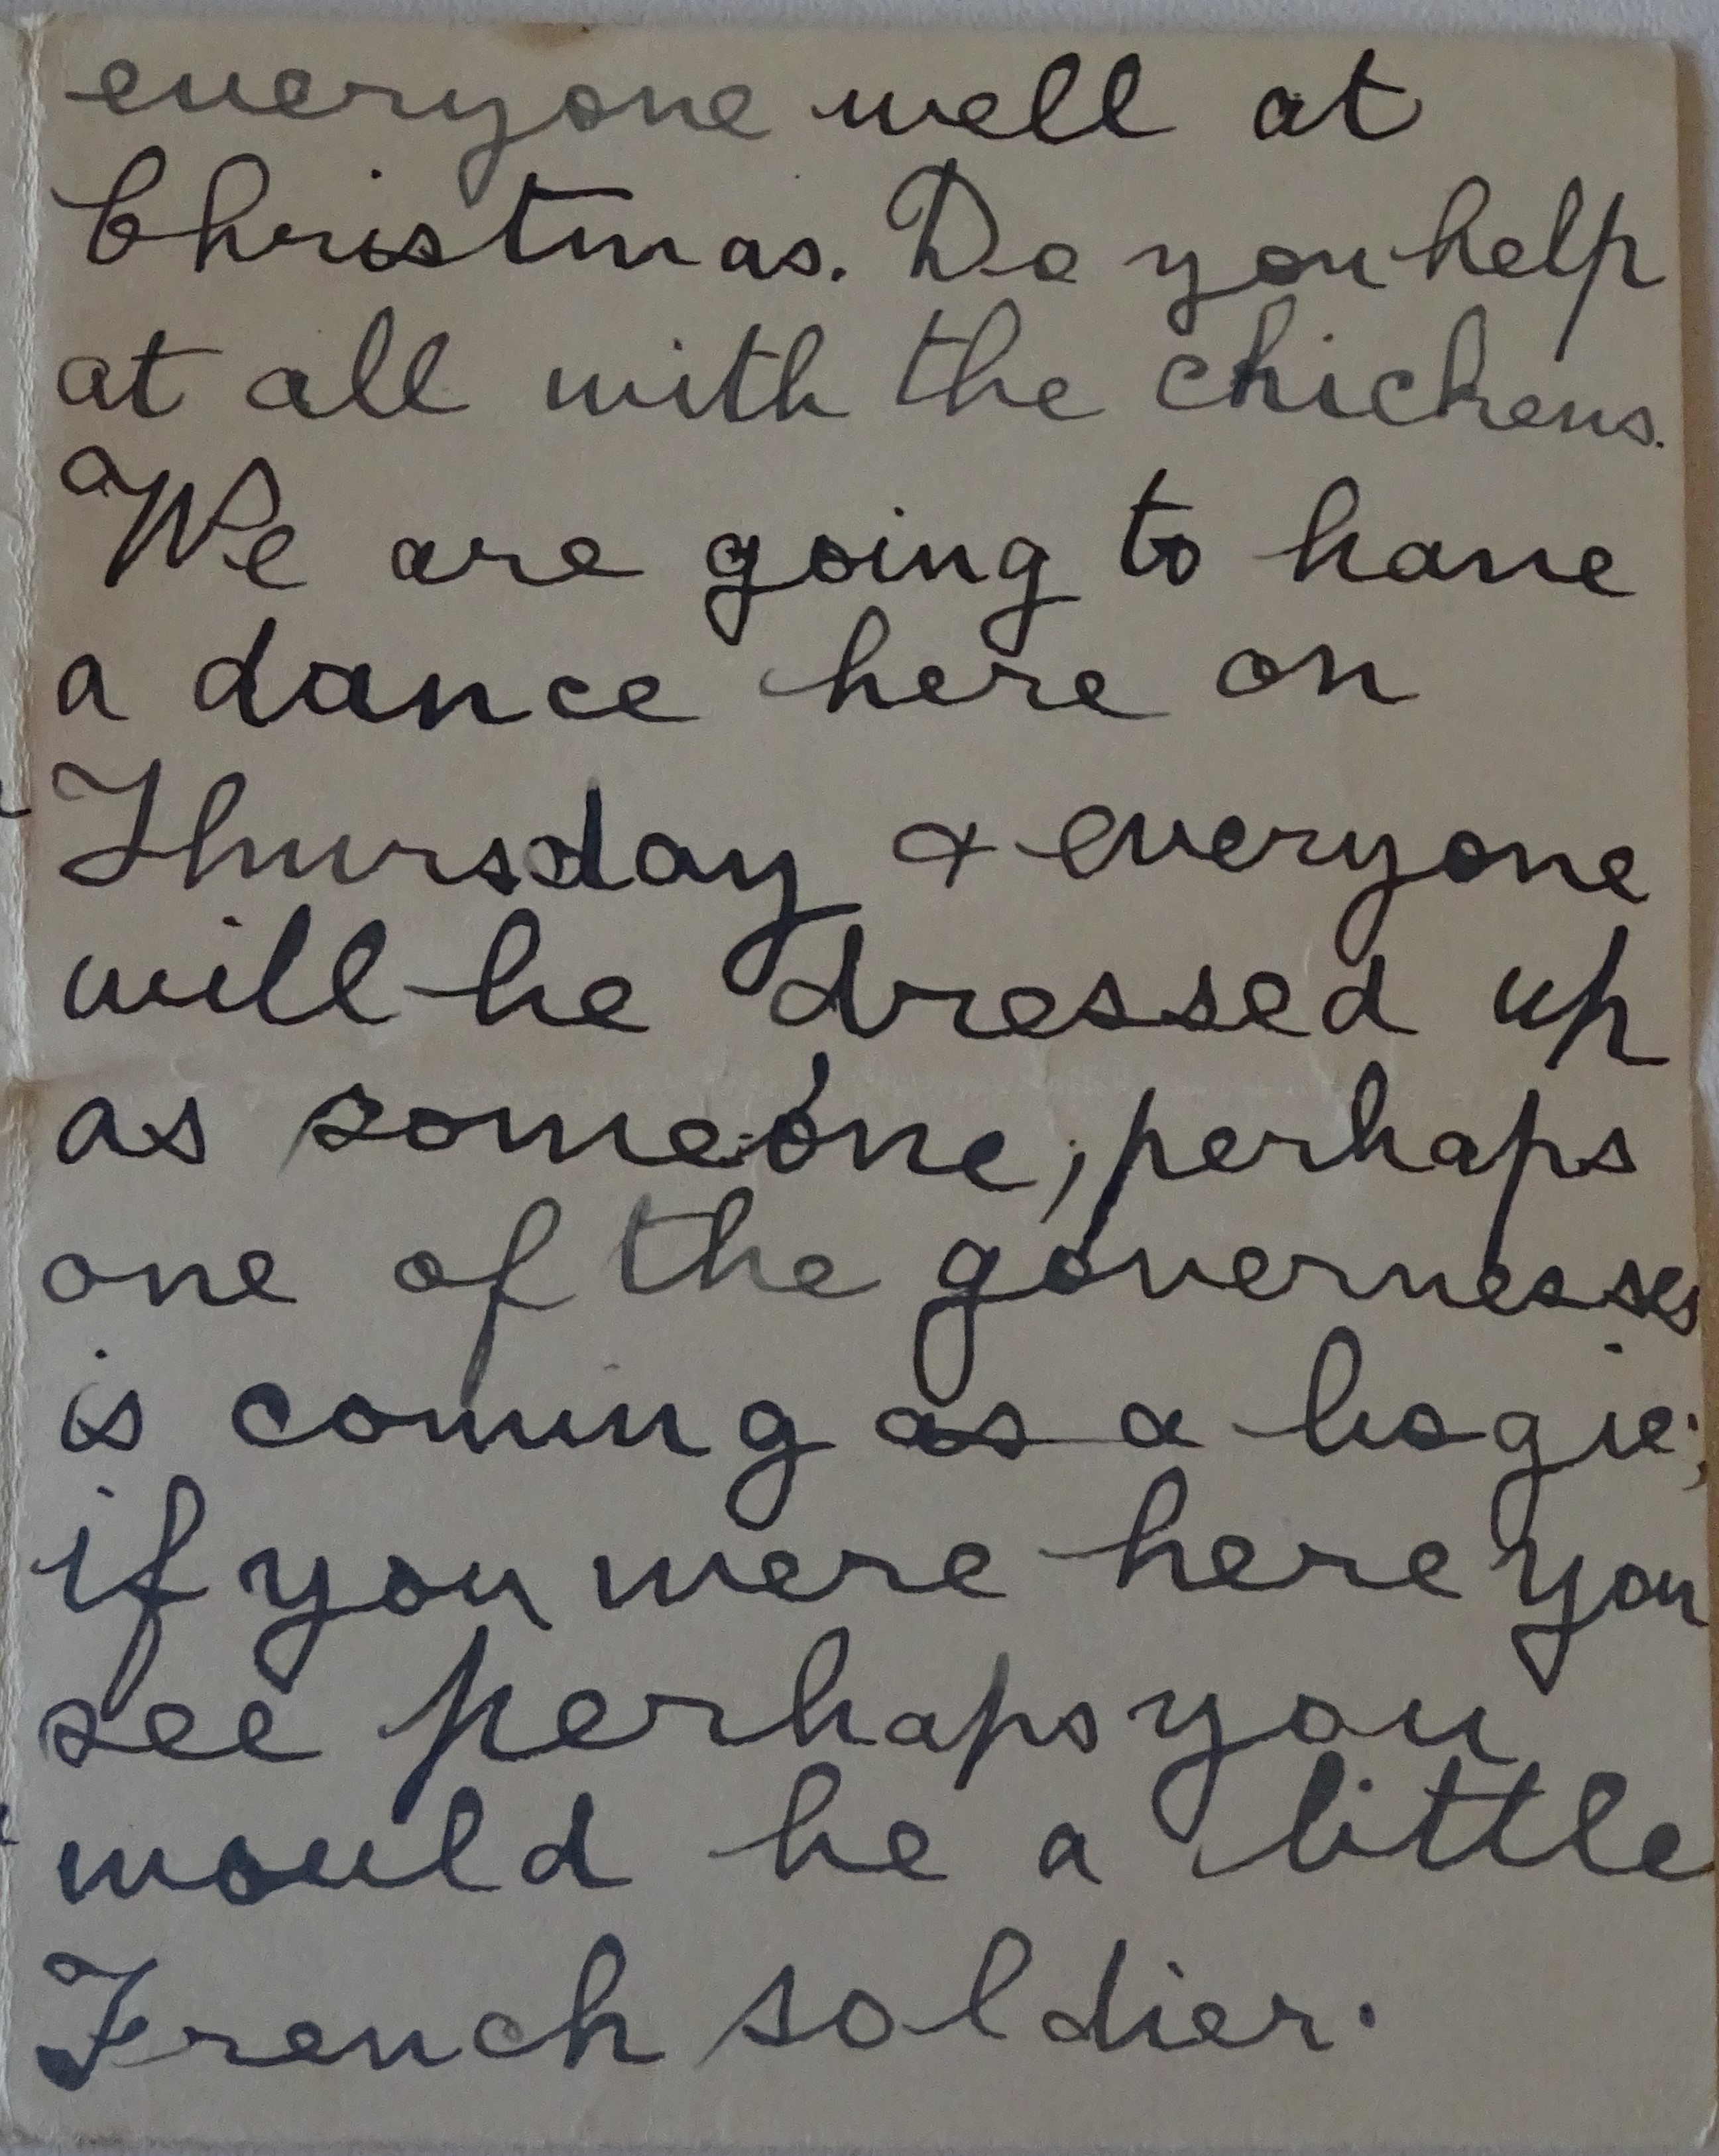 everyone well at
Christmas. Do you help
at all with the chickens.
We are going to have
a dance here on
Thursday & everyone
will be dressed up
as someone, perhaps
one of the governesses
is coming as a bogie;
if you were here you
see perhaps you
would be a little
French soldier.